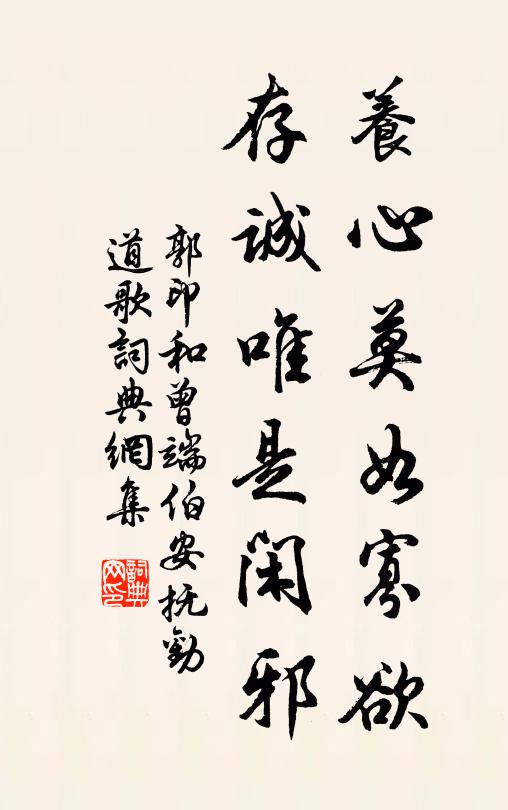 養心莫如寡欲
存誠唯是閑邪
郭印和曾端伯安撫勸
道歌詞典網集
詞典
网印